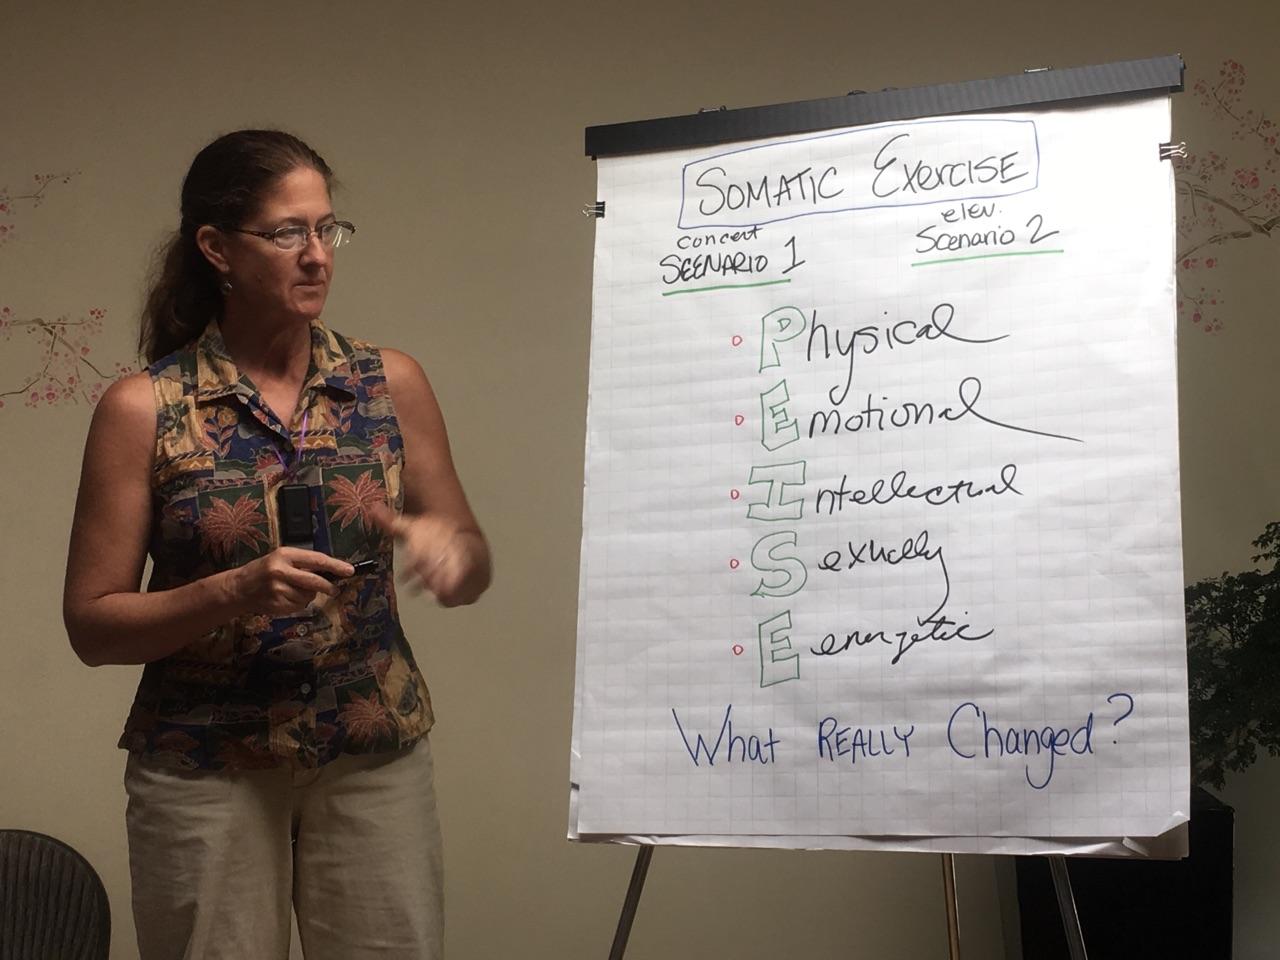 SOMATIC Exercise
concert
SCENARIO 1
elev.
Scenario 2
Physical
Emotional
Intellectual
Sexually
Eenergetic
What REALLY Changed?